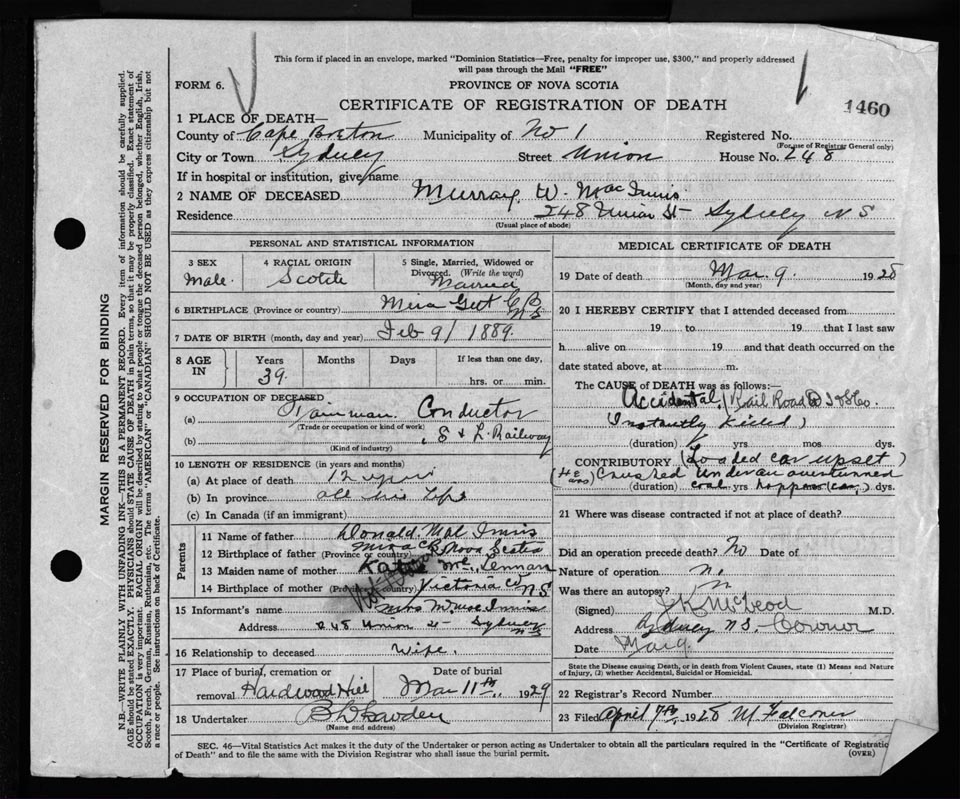 This form if placed in an envelope, marked "Dominion Statistics—Free, penalty for improper use, $300," and properly addressed
will pass through the Mail "FREE"
FORM 6.
PROVINCE OF NOVA SCOTIA
CERTIFICATE OF REGISTRATION OF DEATH
1460
1 PLACE OF DEATH—
County of Cape Breton Municipality of No 1 Registered No.
(For use of Registrar General only)
City or Town Sydney Street Union House No. 248
If in hospital or institution, give name
2 NAME OF DECEASED Murray. W. Mac Innis
Residence 248 Union St— Sydney N S
(Usual place of abode)
PERSONAL AND STATISTICAL INFORMATION
3 SEX Male. 4 RACIAL ORIGIN Scotch 5 Single, Married, Widowed or Divorced. (Write the word) Married
6 BIRTHPLACE (Province or country) Mira Gut C B N S
7 DATE OF BIRTH (month, day and year) Feb 9/ 1889.
8 AGE IN Years 39. Months Days If less than one day, hrs. or min.
9 OCCUPATION OF DECEASED
(a) Trainman. Conductor
(Trade or occupation or kind of work)
(b) S & L. Railway
(Kind of industry)
10 LENGTH OF RESIDENCE (in years and months)
(a) At place of death 12 years
(b) In province all his life
(c) In Canada (if an immigrant)
Parents
11 Name of father Donald Mac Innis
12 Birthplace of father (Province or country) Mira C B Nova Scotia
13 Maiden name of mother Katie Mc Lennan
14 Birthplace of mother (Province or country) Victoria Co N S
15 Informant's name Mrs M. Mac Innis
Address 248 Union St— Sydney N S
16 Relationship to deceased Wife.
17 Place of burial, cremation or removal Hardwood Hill Date of burial Mar 11th, 1929
18 Undertaker
(Name and address)
MEDICAL CERTIFICATE OF DEATH
19 Date of death Mar. 9. 1928
(Month, day and year)
20 I HEREBY CERTIFY that I attended deceased from
19 to 19 that I last saw
h alive on 19 and that death occurred on the
date stated above, at m.
The CAUSE of DEATH was as follows:
Accidental / Rail Road
(Instantly killed)
(duration) yrs mos dys.
CONTRIBUTORY (Loaded car upset)
Crushed under an overturned
(duration) coal yrs hopper car) dys.
21 Where was disease contracted if not at place of death?
Did an operation precede death? No Date of
Nature of operation n.
Was there an autopsy? n
(Signed) J K McLeod M.D.
Address Sydney N S. — Coroner
Date Mar 9.
State the Disease causing Death, or in death from Violent Causes, state (1) Means and Nature
of Injury, (2) whether Accidental, Suicidal or Homicidal.
22 Registrar's Record Number
23 Filed April 7th, 1928 M Falconer
(Division Registrar)
SEC. 46—Vital Statistics Act makes it the duty of the Undertaker or person acting as Undertaker to obtain all the particulars required in the "Certificate of Registration
of Death" and to file the same with the Division Registrar who shall issue the burial permit.
(OVER)
MARGIN RESERVED FOR BINDING
N.B.—WRITE PLAINLY WITH UNFADING INK—THIS IS A PERMANENT RECORD. Every item of information should be carefully supplied.
AGE should be stated EXACTLY. PHYSICIANS should STATE CAUSE OF DEATH in plain terms, so that it may be properly classified. Exact statement of
OCCUPATION is very important. RACIAL ORIGIN will be described by stating to what people or tongue the deceased person belonged, whether English, Irish,
Scotch, French, German, Russian, Ruthenian, etc. The terms "AMERICAN" or "CANADIAN" SHOULD NOT BE USED as they express citizenship but not
a race or people. See instructions on back of Certificate.